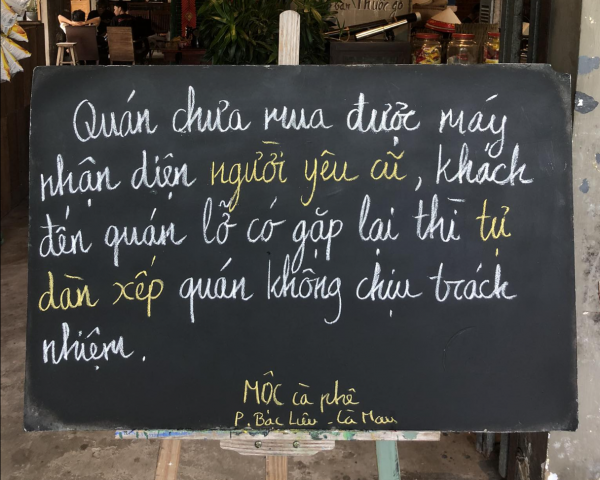 Quán chưa mua được máy
nhận diện người yêu cũ, khách
đến quán lỡ có gặp lại thì tự
dàn xếp quán không chịu trách
nhiệm.
MỘC cà phê
P. Bạc Liêu - Cà Mau